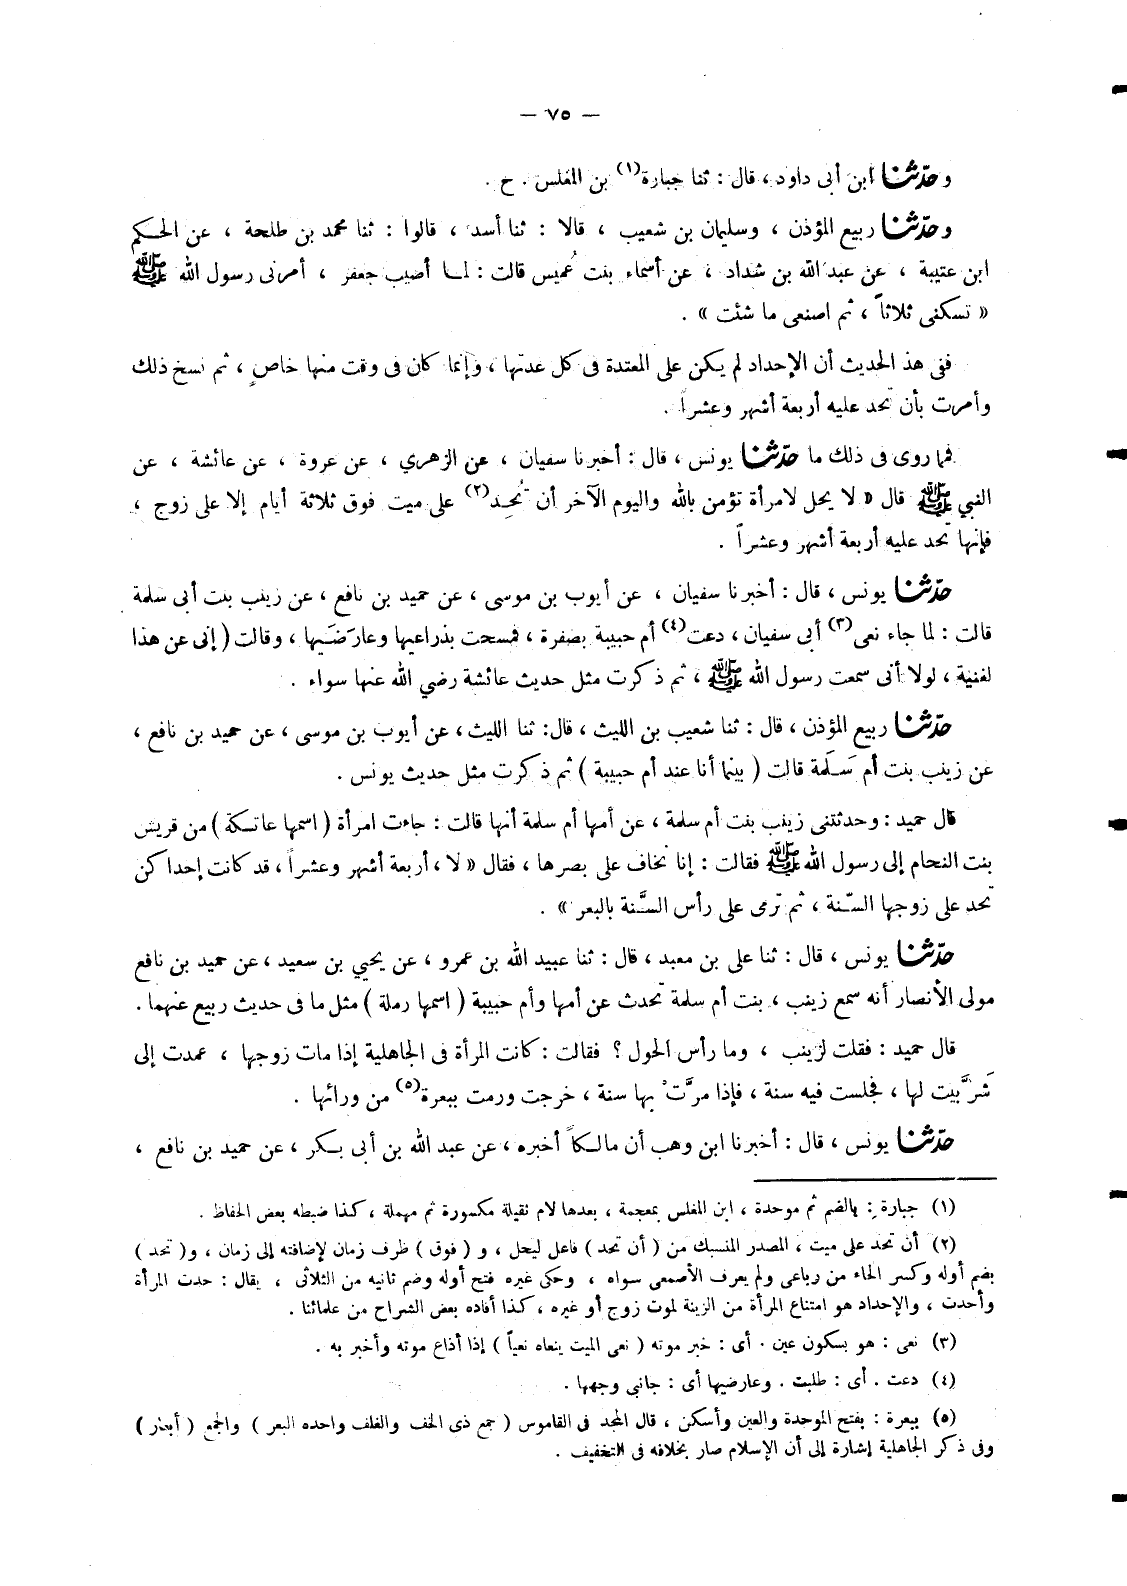 — ٧٥ —
وحدّثنا ابن أبى داود ، قال : ثنا جبارة(١) بن المغلس . ح .
وحدّثنا ربيع المؤذن ، وسليمان بن شعيب ، قالا : ثنا أسد ، قالوا : ثنا محمد بن طلحة ، عن الحكم
ابن عتيبة ، عن عبد الله بن شداد ، عن أسماء بنت عُميس قالت : لما أصيب جعفر ، أمرنى رسول الله ﷺ
« تسكنى ثلاثاً ، ثم اصنعى ما شئت » .
ففى هذ الحديث أن الإحداد لم يكن على المعتدة فى كل عدتها ، وإنما كان فى وقت منها خاصٍ ، ثم نسخ ذلك
وأمرت بأن تحد عليه أربعة أشهر وعشراً .
فما روى فى ذلك ما حدّثنا يونس ، قال : أخبرنا سفيان ، عن الزهري ، عن عروة ، عن عائشة ، عن
النبي ﷺ قال « لا يحل لامرأة تؤمن بالله واليوم الآخر أن تُحِد(٢) على ميت فوق ثلاثة أيام إلا على زوج ،
فإنها تحد عليه أربعة أشهر وعشراً .
حدّثنا يونس ، قال : أخبرنا سفيان ، عن أيوب بن موسى ، عن حميد بن نافع ، عن زينب بنت أبى سلمة
قالت : لما جاء نعى(٣) أبى سفيان ، دعت(٤) أم حبيبة بصفرة ، فمسحت بذراعيها وعارضَيها ، وقالت ( إنى عن هذا
لغنية ، لولا أنى سمعت رسول الله ﷺ ، ثم ذكرت مثل حديث عائشة رضي الله عنها سواء .
حدّثنا ربيع المؤذن ، قال : ثنا شعيب بن الليث ، قال: ثنا الليث ، عن أيوب بن موسى ، عن حميد بن نافع ،
عن زينب بنت أم سَلَمة قالت ( بينما أنا عند أم حبيبة ) ثم ذكرت مثل حديث يونس .
قال حميد : وحدثتنى زينب بنت أم سلمة ، عن أمها أم سلمة أنها قالت : جاءت امرأة ( اسمها عاتكة ) من قريش
بنت النحام إلى رسول الله ﷺ فقالت : إنا نخاف على بصرها ، فقال « لا ، أربعة أشهر وعشراً ، قد كانت إحداكن
تحد على زوجها السّنة ، ثم ترمى على رأس السَّنة بالبعر » .
حدّثنا يونس ، قال : ثنا على بن معبد ، قال : ثنا عبيد الله بن عمرو ، عن يحيي بن سعيد ، عن حميد بن نافع
مولى الأنصار أنه سمع زينب ، بنت أم سلمة تحدث عن أمها وأم حبيبة ( اسمها رملة ) مثل ما فى حديث ربيع عنهما .
قال حميد : فقلت لزينب ، وما رأس الحول ؟ فقالت : كانت المرأة فى الجاهلية إذا مات زوجها ، عمدت إلى
شَرِّ بيت لها ، فجلست فيه سنة ، فإذا مرَّتْ بها سنة ، خرجت ورمت ببعرة(٥) من ورائها .
حدّثنا يونس ، قال : أخبرنا ابن وهب أن مالكاً أخبره ، عن عبد الله بن أبى بكر ، عن حميد بن نافع ،
(١) جبارة : بالضم ثم موحدة ، ابن المغلس بمعجمة ، بعدها لام ثقيلة مكسورة ثم مهملة ، كذا ضبطه بعض الحفاظ .
(٢) أن تحد على ميت ، المصدر المنسبك من ( أن تحد ) فاعل ليحل ، و ( فوق ) ظرف زمان لإضافته إلى زمان ، و( تحد )
بضم أوله وكسر الحاء من رباعى ولم يعرف الأصمعى سواه ، وحكى غيره فتح أوله وضم ثانيه من الثلاثى ، يقال : حدت المرأة
وأحدت ، والإحداد هو امتناع المرأة من الزينة لموت زوج أو غيره ، كذا أفاده بعض الشراح من علمائنا .
(٣) نعى : هو بسكون عين . أى : خبر موته ( نعى الميت ينعاه نعياً ) إذا أذاع موته وأخبر به .
(٤) دعت . أى : طلبت . وعارضيها أى : جانبى وجهها .
(٥) ببعرة : بفتح الموحدة والعين وأسكن ، قال المجد فى القاموس ( جمع ذى الخف والظلف واحده البعر ) والجمع ( أبعار )
وفى ذكر الجاهلية إشارة إلى أن الإسلام صار بخلافه فى التخفيف .